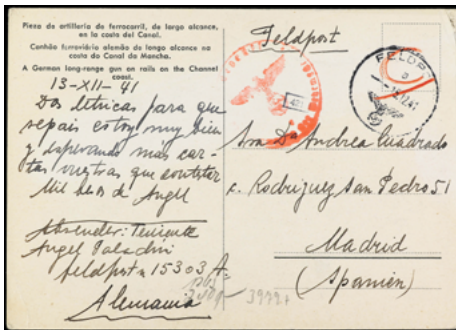 Pieza de artillería de ferrocarril, de largo alcance,
en la costa del Canal.
Canhão ferroviário alemão de longo alcance na
costa do Canal da Mancha.
A German long-range gun on rails on the Channel
coast.
13-XII-41
Dos letricas para que
sepais estoy muy bien
y esperando más car-
tas vuestras que contestar
Mil besos de Angel
Absender: Teniente
Angel Paladini
Feldpost n 15303 A.
Alemania
Feldpost
FELDP
Sra Dª Andrea Cuadrado
c. Rodriguez San Pedro 51
Madrid
(Spanien)